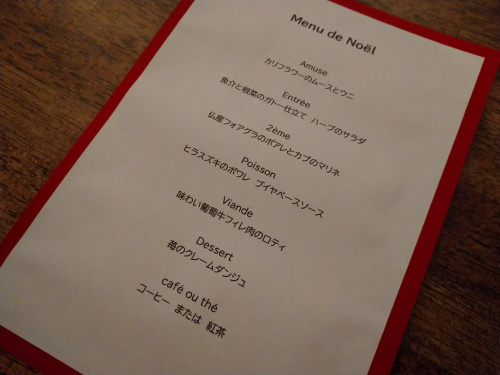 Menu de Noël
Amuse
カリフラワーのムースとウニ
Entrée
魚介と根菜のガトー仕立て ハーブのサラダ
2ème
仏産フォアグラのポアレとカブのマリネ
Poisson
ヒラスズキのポワレ ブイヤベースソース
Viande
味わい葡萄牛フィレ肉のロティ
Dessert
苺のクレームダンジュ
café ou thé
コーヒー または 紅茶